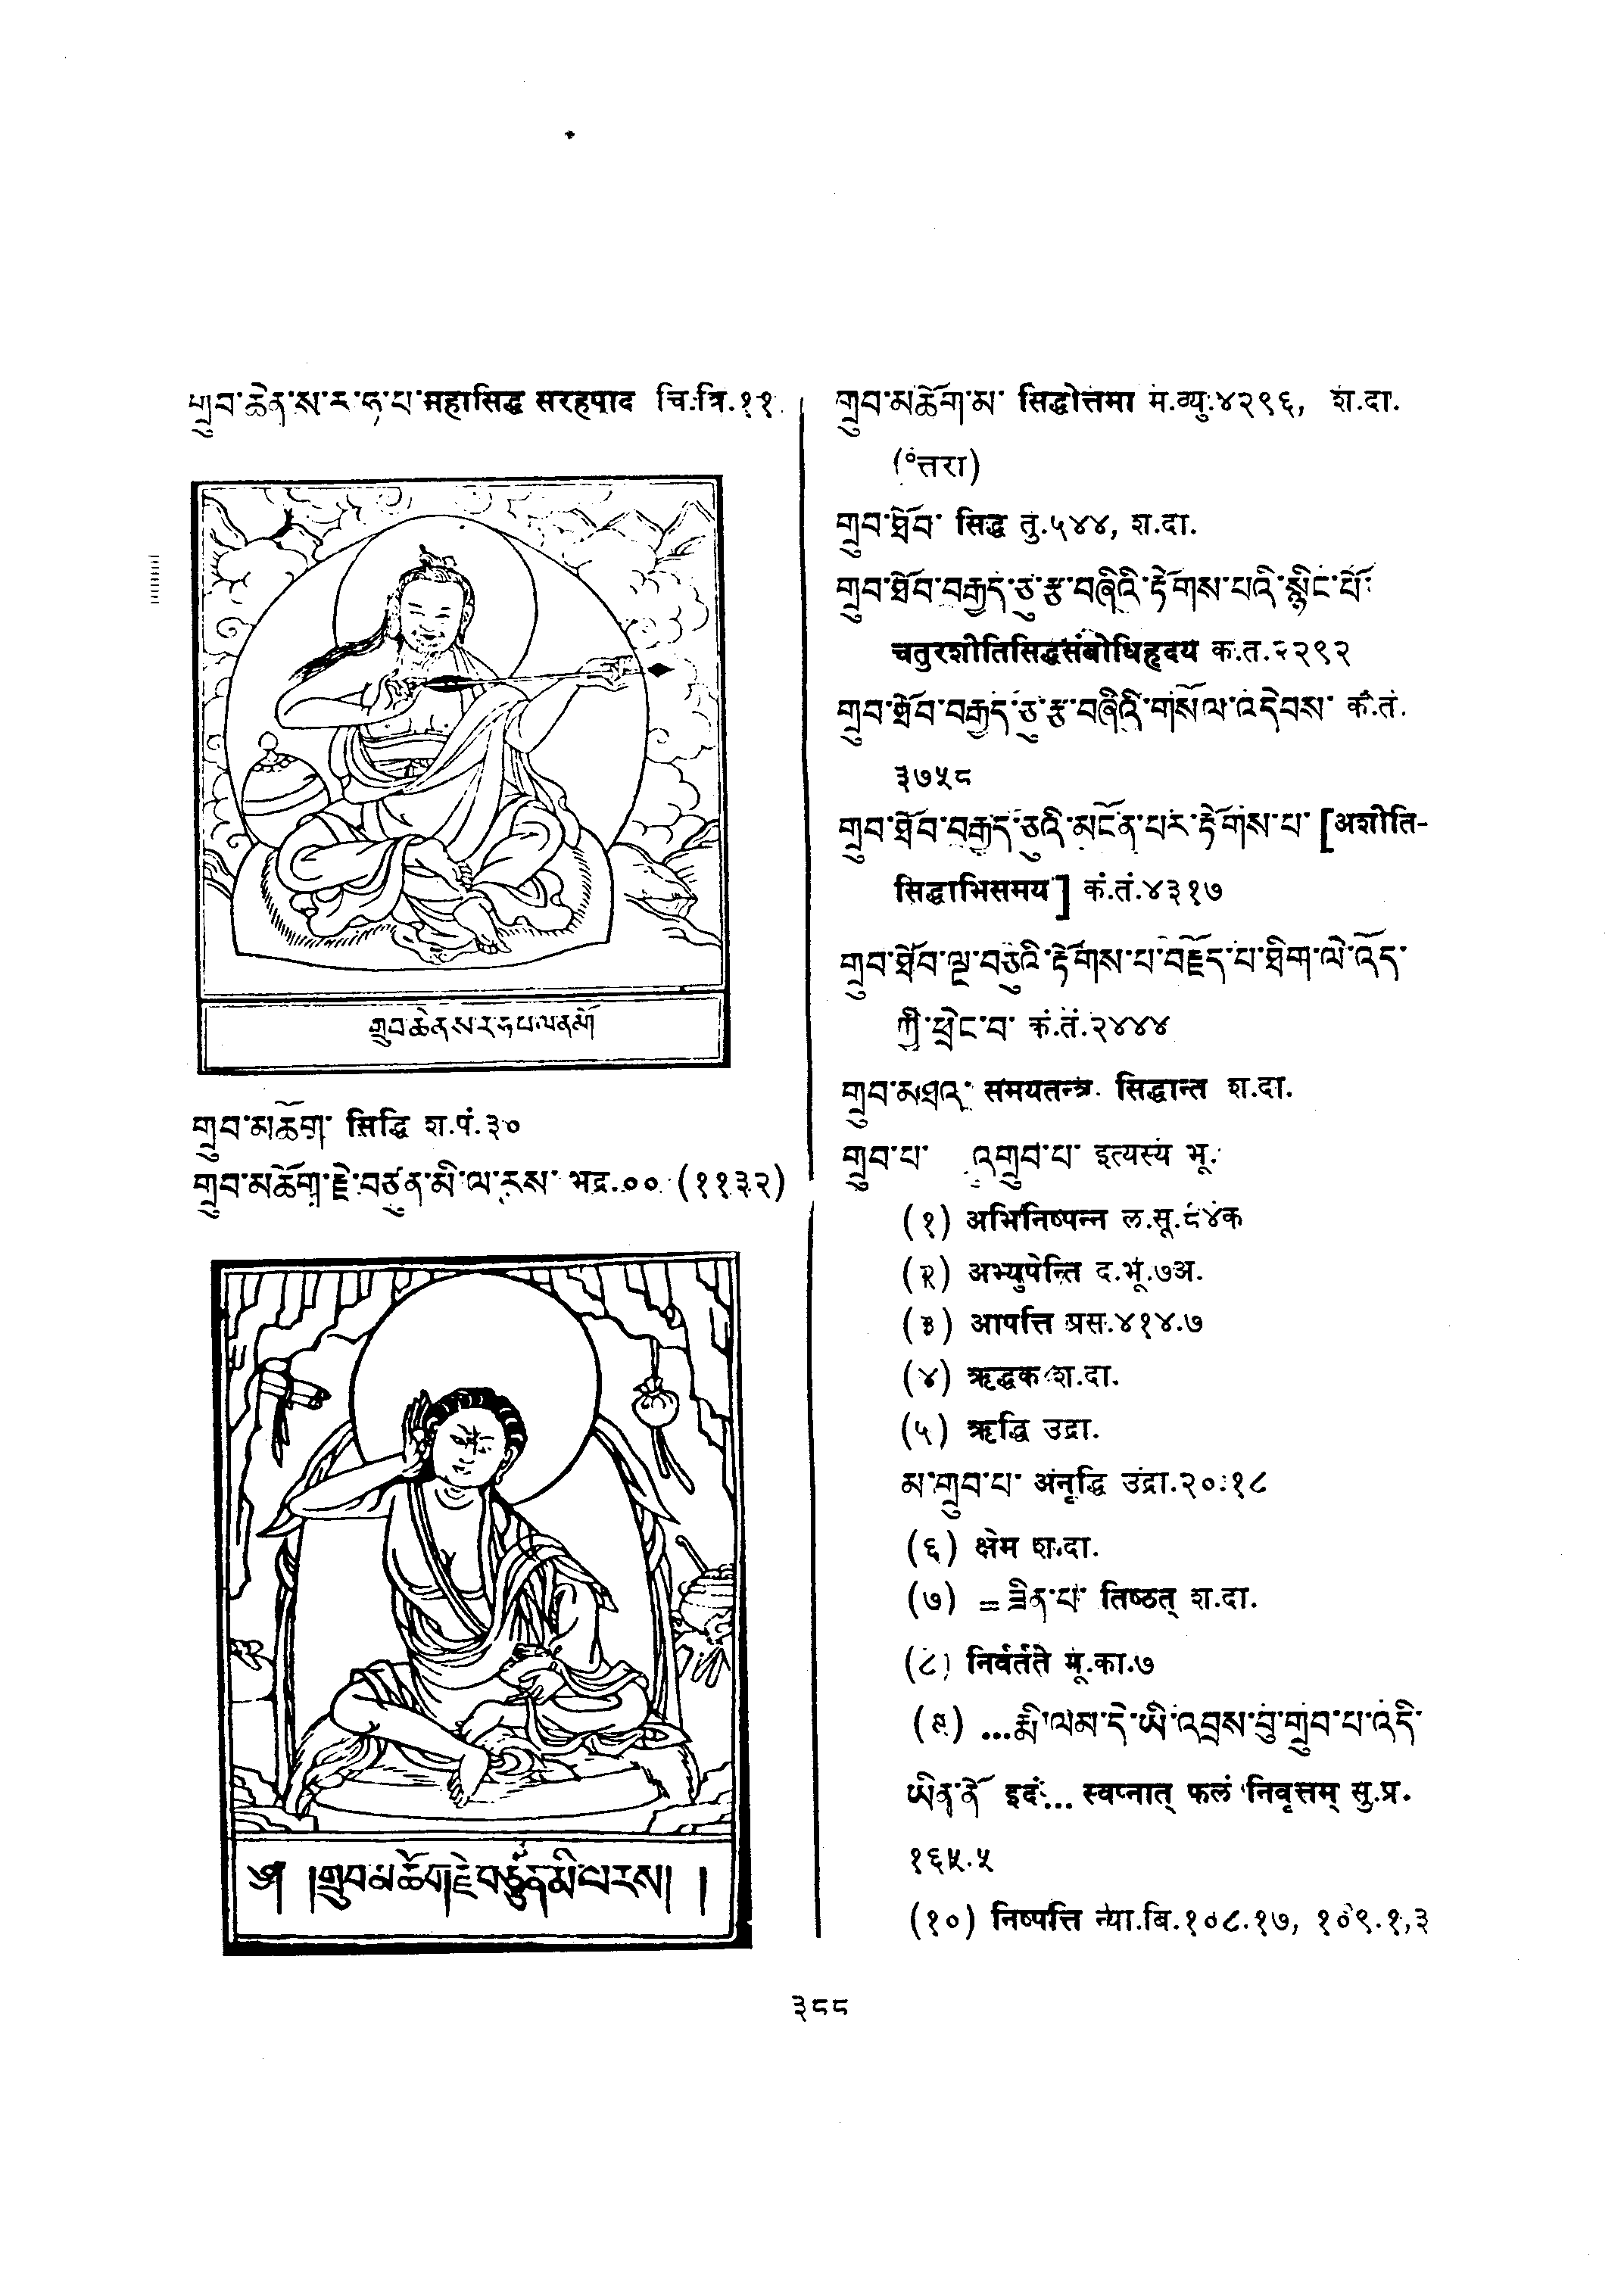 གྲུབ་ཆེན་ས་ར་ཧ་པ་ महासिद्ध सरहपाद चि.त्रि.११
གྲུབ་ཆེན་ས་ར་ཧ་པ་ལ་ན་མོ
གྲུབ་མཆོག་ सिद्धि श.पं.३०
གྲུབ་མཆོག་རྗེ་བཙུན་མི་ལ་རས་ भद्र.०० (११३२)
༄༅། །གྲུབ་མཆོག་རྗེ་བཙུན་མི་ལ་རས། །
གྲུབ་མཆོག་མ་ सिद्धोत्तमा म.व्यु.४२९६, श.दा.
(°त्तरा)
གྲུབ་ཐོབ་ सिद्ध तु.५४४, श.दा.
གྲུབ་ཐོབ་བརྒྱད་ཅུ་རྩ་བཞིའི་རྟོགས་པའི་སྙིང་པོ་
चतुरशीतिसिद्धसंबोधिहृदय क.त.२२९२
གྲུབ་ཐོབ་བརྒྱད་ཅུ་རྩ་བཞིའི་གསོལ་འདེབས་ क.त.
३७५८
གྲུབ་ཐོབ་བརྒྱད་ཅུའི་མངོན་པར་རྟོགས་པ་ [अशीति-
सिद्धाभिसमय] क.त.४३१७
གྲུབ་ཐོབ་ལྔ་བཅུའི་རྟོགས་པ་བརྗོད་པ་ཐིག་ལེ་འོད་
ཀྱི་ཕྲེང་བ་ क.त.२४४४
གྲུབ་མཐའ་ समयतन्त्र. सिद्धान्त श.दा.
གྲུབ་པ་ འགྲུབ་པ་ इत्यस्य भू.
(१) अभिनिष्पन्न ल.सू.८४क
(२) अभ्युपेन्ति द.भू.७अ.
(३) आपत्ति प्रस.४१४.७
(४) ऋद्धक श.दा.
(५) ऋद्धि उद्रा.
མ་གྲུབ་པ་ अनृद्धि उद्रा.२०.१८
(६) क्षेम श.दा.
(७) =ཟིན་པ་ तिष्ठत् श.दा.
(८) निर्वर्तते मू.का.७
(९) ...རྨི་ལམ་དེ་ཡི་འབྲས་བུ་གྲུབ་པ་འདི་
ཡིན་ནོ इदं... स्वप्नात् फलं निवृत्तम् सु.प्र.
१६५.५
(१०) निष्पत्ति न्या.बि.१०८.१७, १०९.१,३
३८८